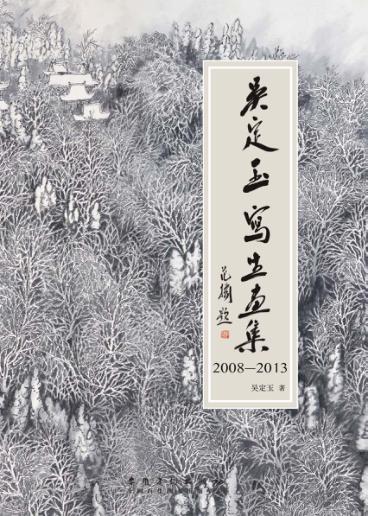 吴定玉写生画集
范扬题
2008—2013
吴定玉 著